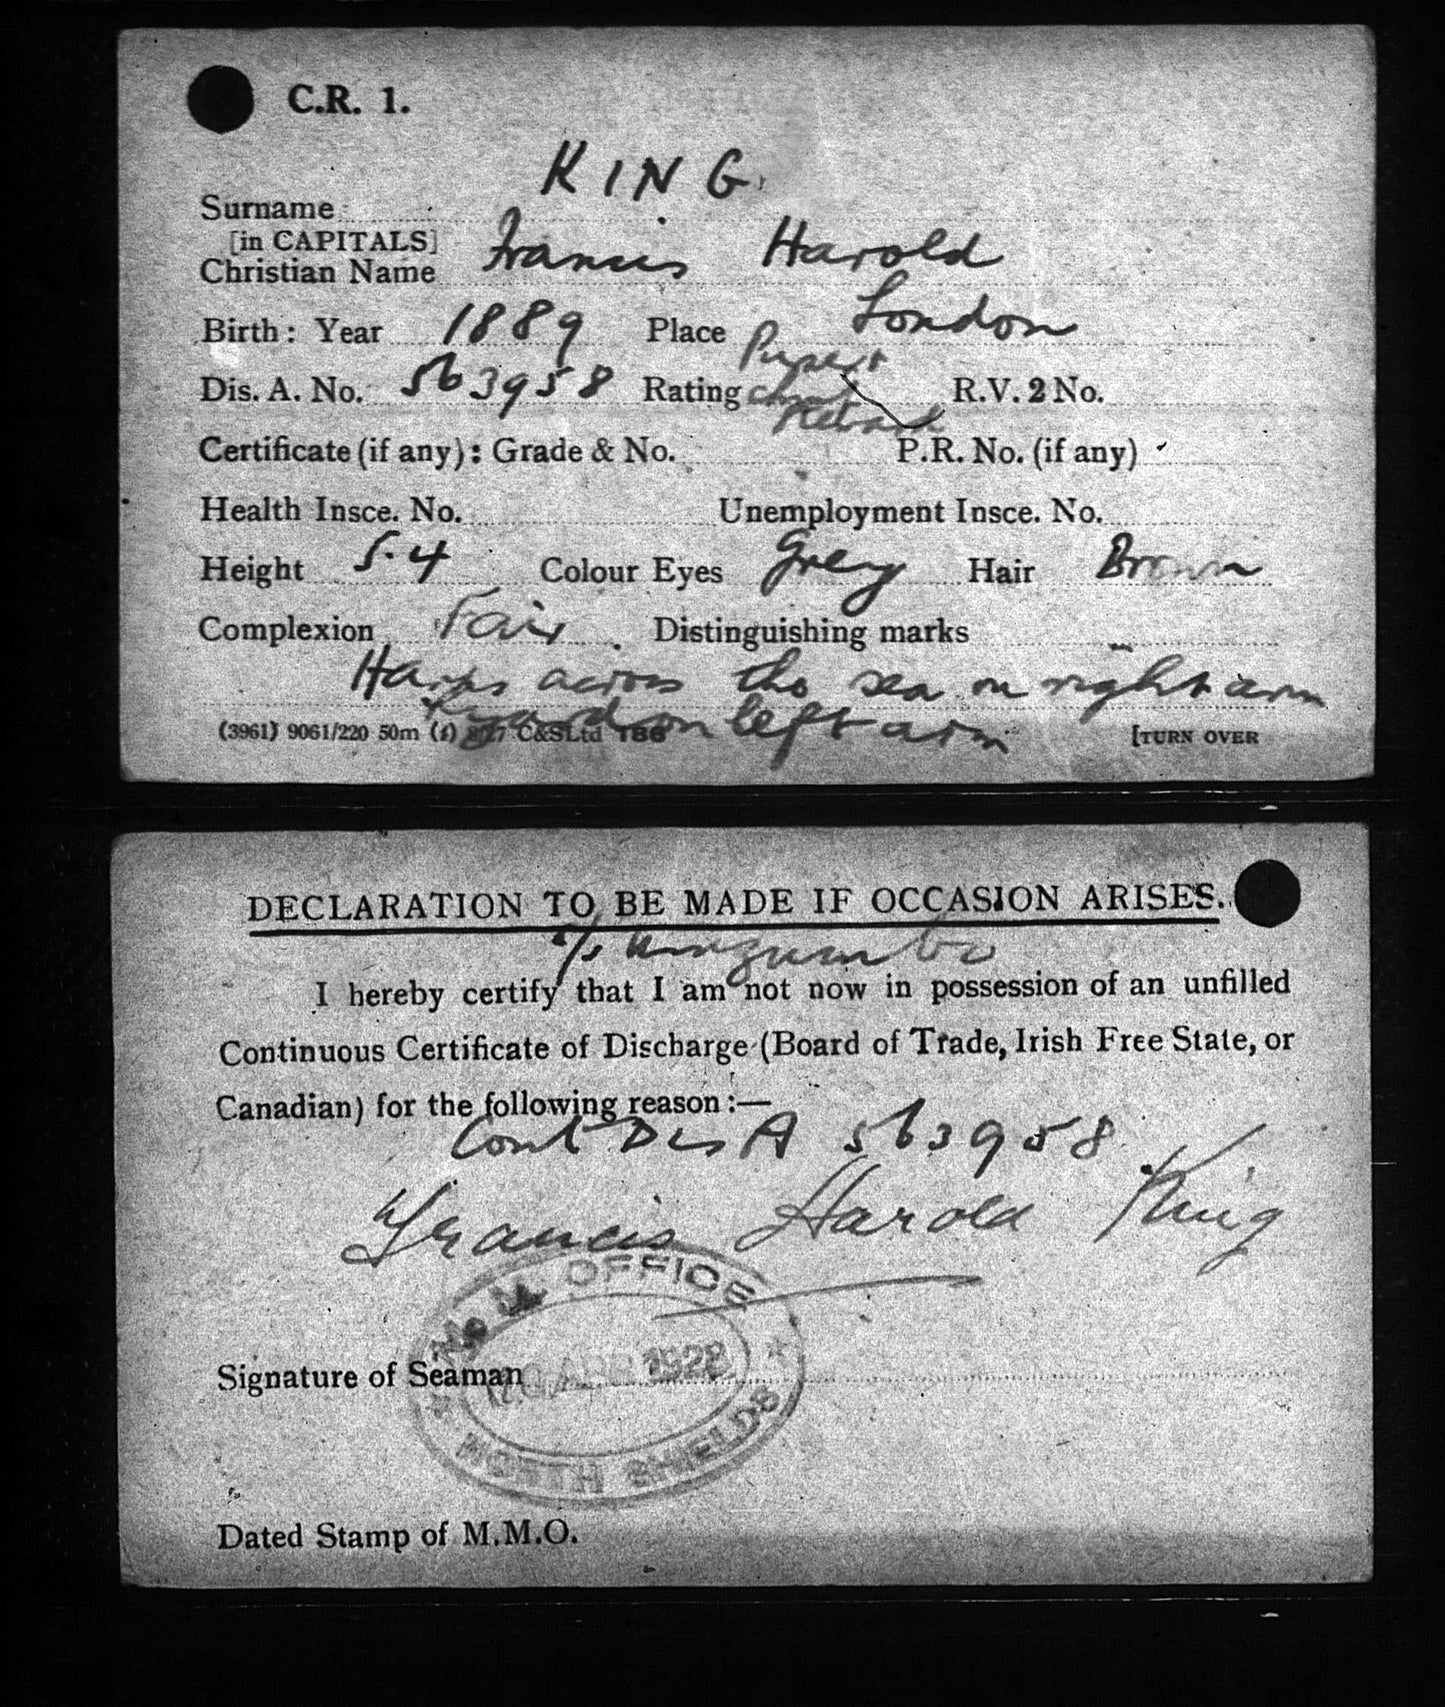 C.R. 1.
KING.
Surname
[in CAPITALS]
Christian Name Francis Harold
Birth: Year 1889 Place London
Dis. A. No. 563958 Rating R.V. 2 No.
Certificate (if any): Grade & No. P.R. No. (if any)
Health Insce. No. Unemployment Insce. No.
Height 5.4 Colour Eyes Grey Hair Brown
Complexion Fair Distinguishing marks
across the sea on right arm
left arm
(3961) 9061/220 50m (f) 8/27 C&SLtd [TURN OVER
DECLARATION TO BE MADE IF OCCASION ARISES.
I hereby certify that I am not now in possession of an unfilled
Continuous Certificate of Discharge (Board of Trade, Irish Free State, or
Canadian) for the following reason:—
Cont Dis A 563958
Francis Harold King
M. M. OFFICE
APR 1928
Signature of Seaman
NORTH SHIELDS
Dated Stamp of M.M.O.